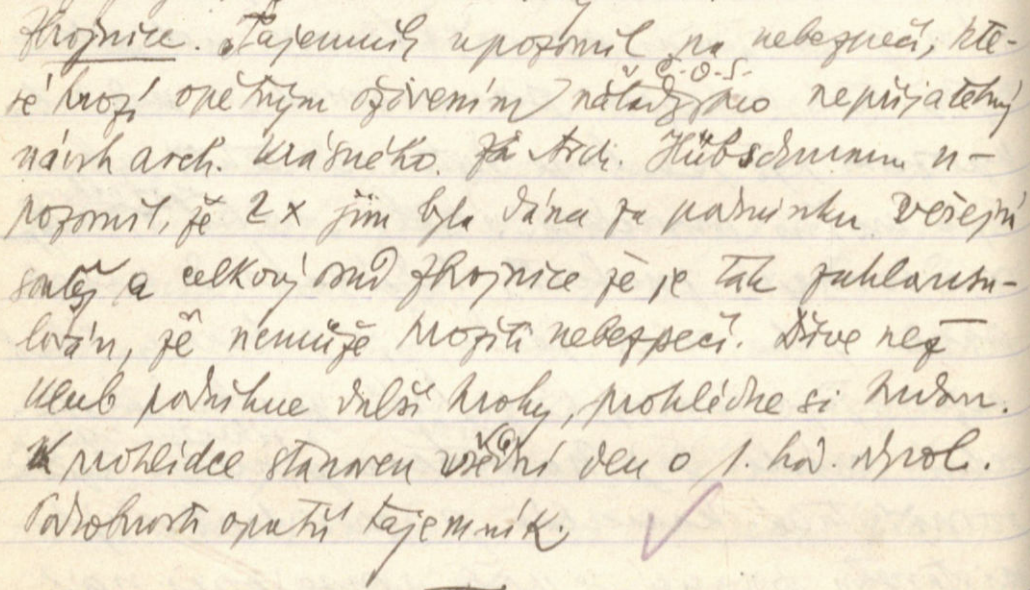 Zbrojnice. Tajemník upozornil na nebezpečí, kte-
ré hrozí opětným oživením nálady pro nepřijatelný
Č.O.S.
návrh arch. Krásného. Arch. Hübschmann u-
pozornil, že 2 x jim byla dána za podmínku veřejná
soutěž a celkový osud Zbrojnice že je tak zaklausu-
lován, že nemůže hroziti nebezpečí. Dříve než
klub podnikne další kroky, prohlédne si budov.
K prohlídce stanoven všední den o 1. hod. odpol.
Podrobnosti opatří tajemník.